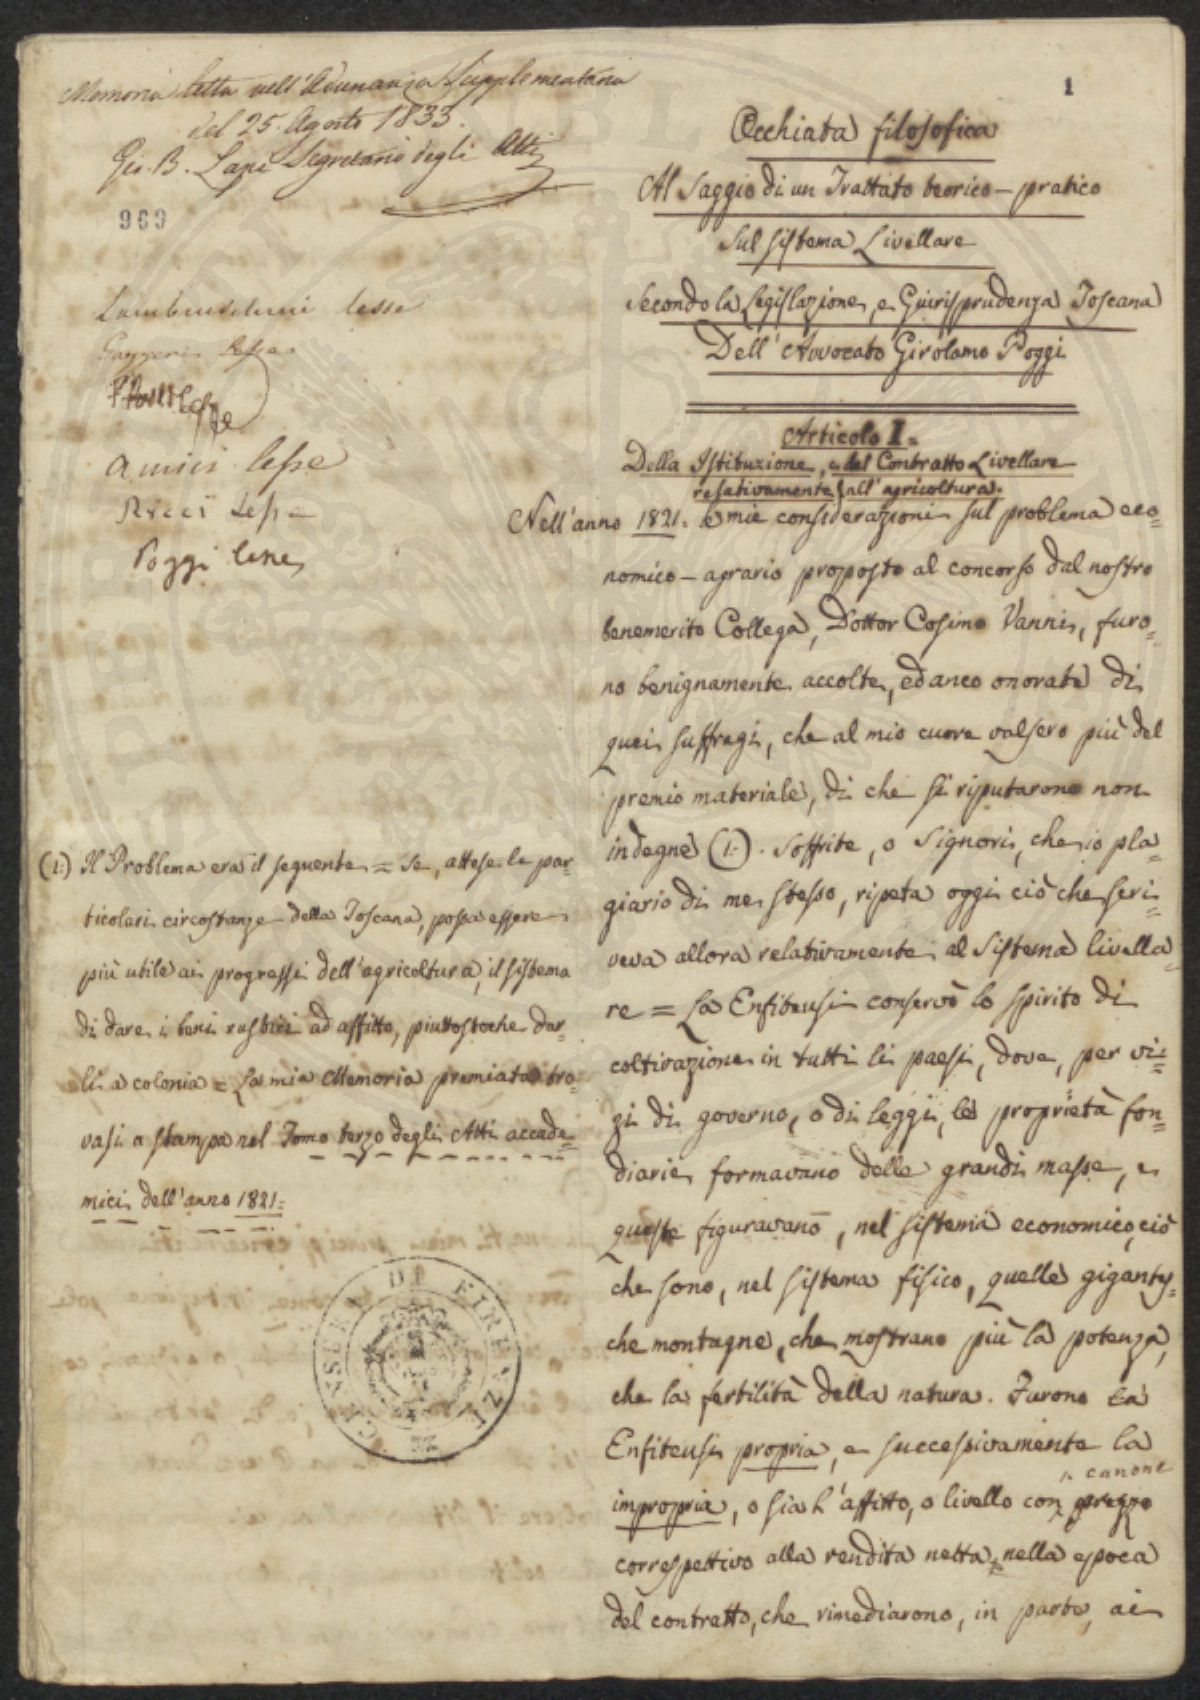 1
Memoria letta nell'Adunanza Supplementaria
del 25. Agosto 1833.
Gio. B. Lapi Segretario degli Atti
969
Lambruschini lesse
Gazzeri lesse
lesse
Amici lesse
Ricci lesse
Poggi lesse
Occhiata filosofica
Al Saggio di un Trattato teorico-pratico
Sul sistema Livellare
Secondo la Legislazione, e Giurisprudenza Toscana
Dell'Avvocato Girolamo Poggi
Articolo I=
Della Istituzione, e del Contratto Livellare
relativamente all'agricoltura.
Nell'anno 1821. le mie considerazioni sul problema eco=
nomico-agrario proposto al concorso dal nostro
benemerito Collega, Dottor Cosimo Vanni, furo=
no benignamente accolte, ed anco onorate di
quei suffragi, che al mio cuore valsero più del
premio materiale, di che si riputarono non
indegne (1.). Soffrite, o Signori, che io pla=
giario di me stesso, ripeta oggi ciò che scri=
veva allora relativamente al Sistema livella=
re = La Enfiteusi conservò lo spirito di
coltivazione in tutti li paesi, dove, per vi=
zi di governo, o di leggi, le proprietà fon=
diarie formavano delle grandi masse, e
queste figuravano, nel sistema economico, ciò
che sono, nel sistema fisico, quelle gigantes=
che montagne, che mostrano più la potenza,
che la fertilità della natura. Furono la
Enfiteusi propria, e successivamente la
impropria, o sia l'affitto, o livello con prezzo
canone
correspettivo alla rendita netta, nella epoca
del contratto, che rimediarono, in parte, ai
(1.) Il Problema era il seguente = Se, attese le par=
ticolari circostanze della Toscana, possa essere
più utile ai progressi dell'agricoltura, il sistema
di dare i beni rustici ad affitto, piuttostoche dar=
li a colonia = La mia Memoria premiata tro=
vasi a stampa nel Tomo terzo degli Atti accade=
mici dell'anno 1821.=
CENSURA DI FIRENZE